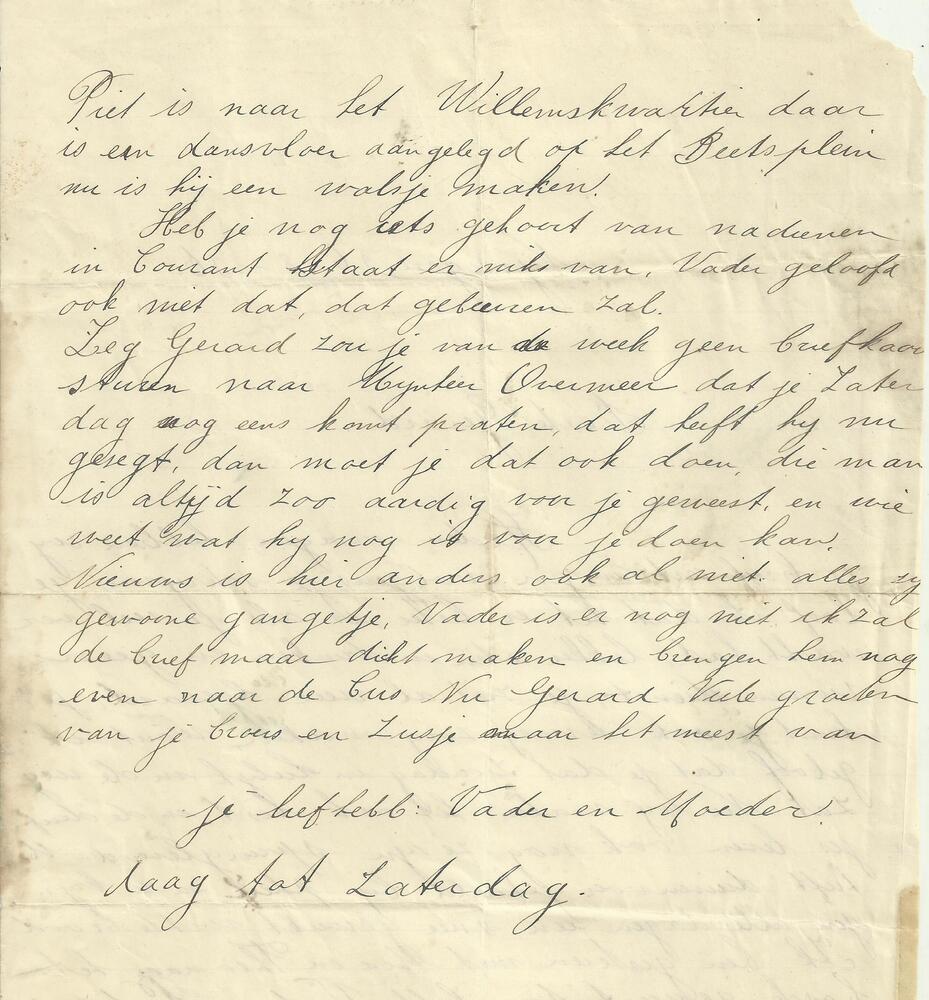 Piet is naar het Willemskwartier daar
is een dansvloer aangelegd op het Beetsplein
nu is hij een walsje maken!
Heb je nog iets gehoort van nadienen
in Courant staat er niks van, Vader geloofd
ook niet dat, dat gebeuren zal.
Zeg Gerard zou je van de week geen briefkaar
sturen naar Mijnheer Overmeer dat je Zater
dag nog eens komt praten, dat heeft hij nu
gesegt, dan moet je dat ook doen, die man
is altijd zoo aardig voor je geweest, en wie
weet wat hij nog is voor je doen kan.
Nieuws is hier anders ook al niet. alles zij
gewoone gangetje, Vader is er nog niet ik zal
de brief maar dicht maken en brengen hem nog
even naar de bus Nu Gerard Vele groeten
van je broers en Zusje maar het meest van
je liefhebb: Vader en Moeder.
daag tot Zaterdag.